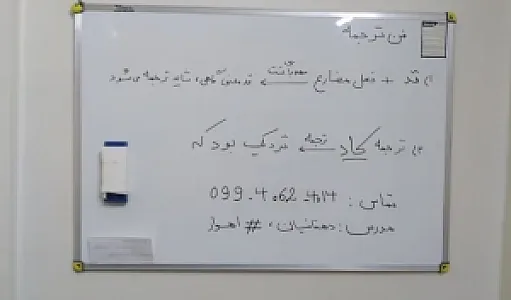 فن ترجمه
۱) قد + فعل مضارع ← قد معنی گاهی، شاید ترجمه می‌شود
۲) ترجمه کاد ترجمه ← نزدیک بود که
تماس: 099.4062.414
مدرس: دهقانیان، # اهواز